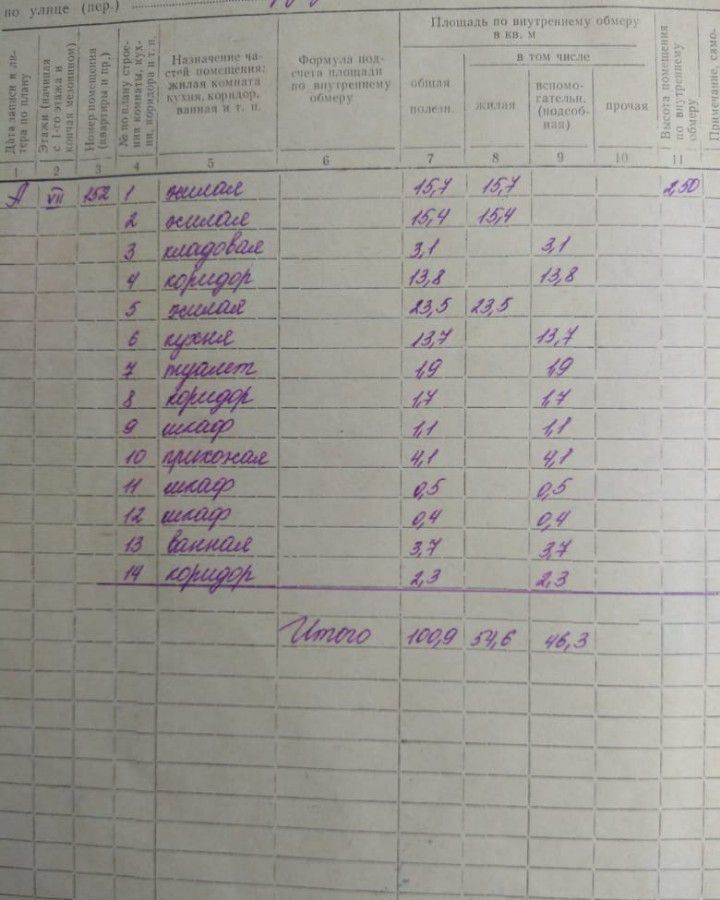 по улице (пер.)
Дата записи и литера по плану
Этажи (начиная с 1-го этажа и кончая мезонином)
Номер помещения (квартиры и пр.)
№ по плану строения комнаты, кухни, коридора и т. п.
Назначение частей помещения: жилая комната кухня, коридор, ванная и т. п.
Формула подсчета площади по внутреннему обмеру
Площадь по внутреннему обмеру в кв. м
в том числе
общая полезн.
жилая
вспомогательн. (подсобная)
прочая
Высота помещения по внутреннему обмеру
Примечание, само-
1 2 3 4 5 6 7 8 9 10 11
А VII 152 1 жилая 15,7 15,7 2,50
2 жилая 15,4 15,4
3 кладовая 3,1 3,1
4 коридор 13,8 13,8
5 жилая 23,5 23,5
6 кухня 13,7 13,7
7 туалет 1,9 1,9
8 коридор 1,7 1,7
9 шкаф 1,1 1,1
10 прихожая 4,1 4,1
11 шкаф 0,5 0,5
12 шкаф 0,4 0,4
13 ванная 3,7 3,7
14 коридор 2,3 2,3
Итого 100,9 54,6 46,3